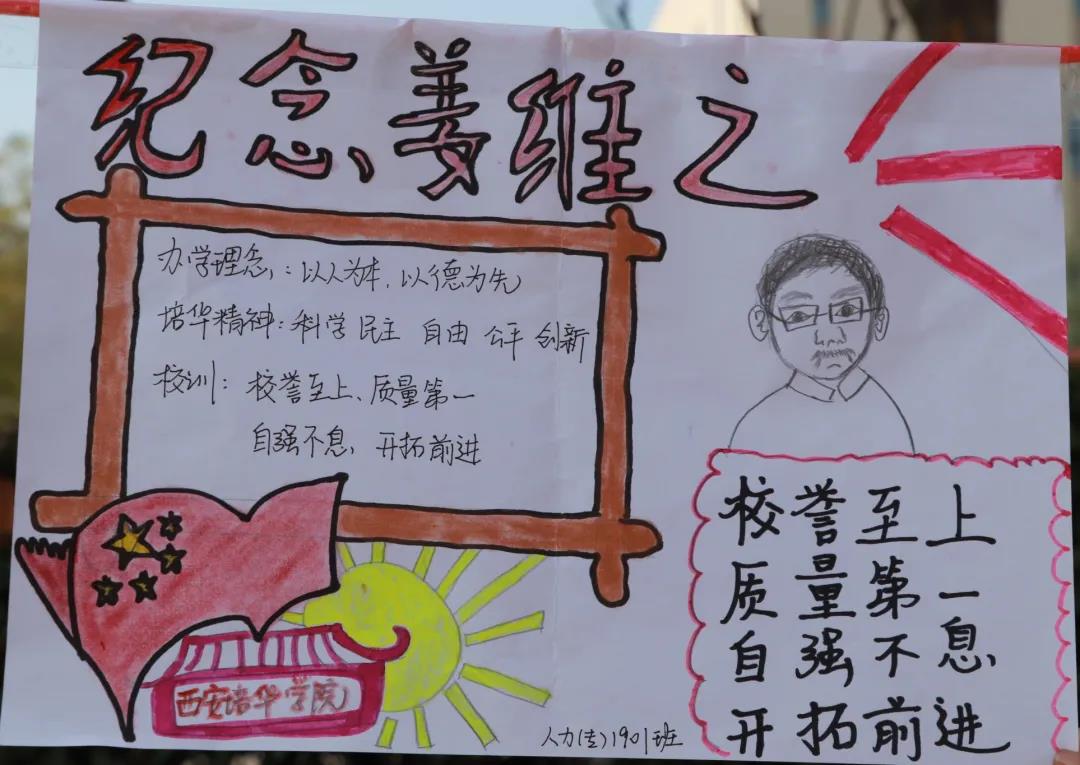 纪念姜维之
办学理念：以人为本，以德为先
培华精神：科学 民主 自由 公平 创新
校训：校誉至上、质量第一
自强不息、开拓前进
校誉至上
质量第一
自强不息
开拓前进
西安培华学院
人力(专)1901班